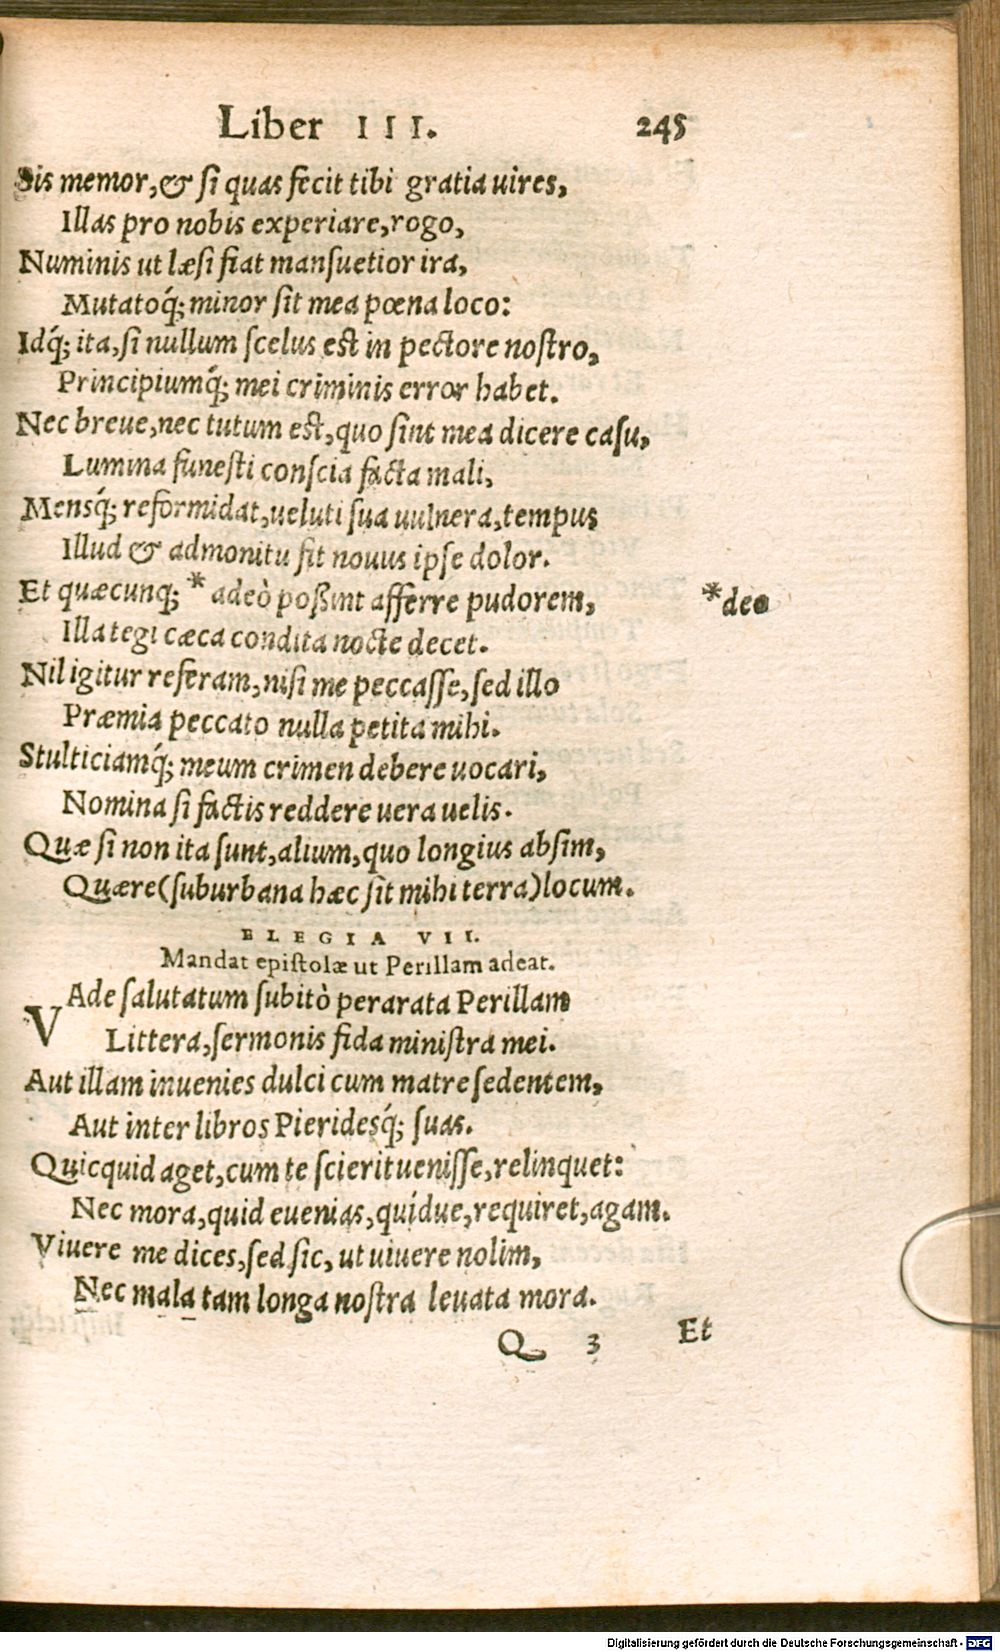 Liber III. 245
Sis memor,& ſi quas fecit tibi gratia uires,
Illas pro nobis experiare,rogo,
Numinis ut læſi fiat manſuetior ira,
Mutatoq́; minor ſit mea pœna loco:
Idq́; ita,ſi nullum ſcelus eſt in pectore noſtro,
Principiumq́; mei criminis error habet.
Nec breue,nec tutum eſt,quo ſint mea dicere caſu,
Lumina funeſti conſcia facta mali,
Mensq́; reformidat,ueluti ſua uulnera,tempus
Illud & admonitu fit nouus ipſe dolor.
Et quæcunq; *adeò poßint afferre pudorem, *deo
Illa tegi cæca condita nocte decet.
Nil igitur referam,niſi me peccaſſe,ſed illo
Præmia peccato nulla petita mihi.
Stulticiamq́; meum crimen debere uocari,
Nomina ſi factis reddere uera uelis.
Quæ ſi non ita ſunt,alium,quo longius abſim,
Quære(ſuburbana hæc ſit mihi terra)locum.
ELEGIA VII.
Mandat epiſtolæ ut Perillam adeat.
VAde ſalutatum ſubitò perarata Perillam
Littera,ſermonis fida miniſtra mei.
Aut illam inuenies dulci cum matre ſedentem,
Aut inter libros Pieridesq́; ſuas.
Quicquid aget,cum te ſcierit ueniſſe,relinquet:
Nec mora,quid euenias,quídue,requiret,agam.
Viuere me dices,ſed ſic, ut uiuere nolim,
Nec mala tam longa noſtra leuata mora.
Q 3 Et
Digitalisierung gefördert durch die Deutsche Forschungsgemeinschaft - DFG